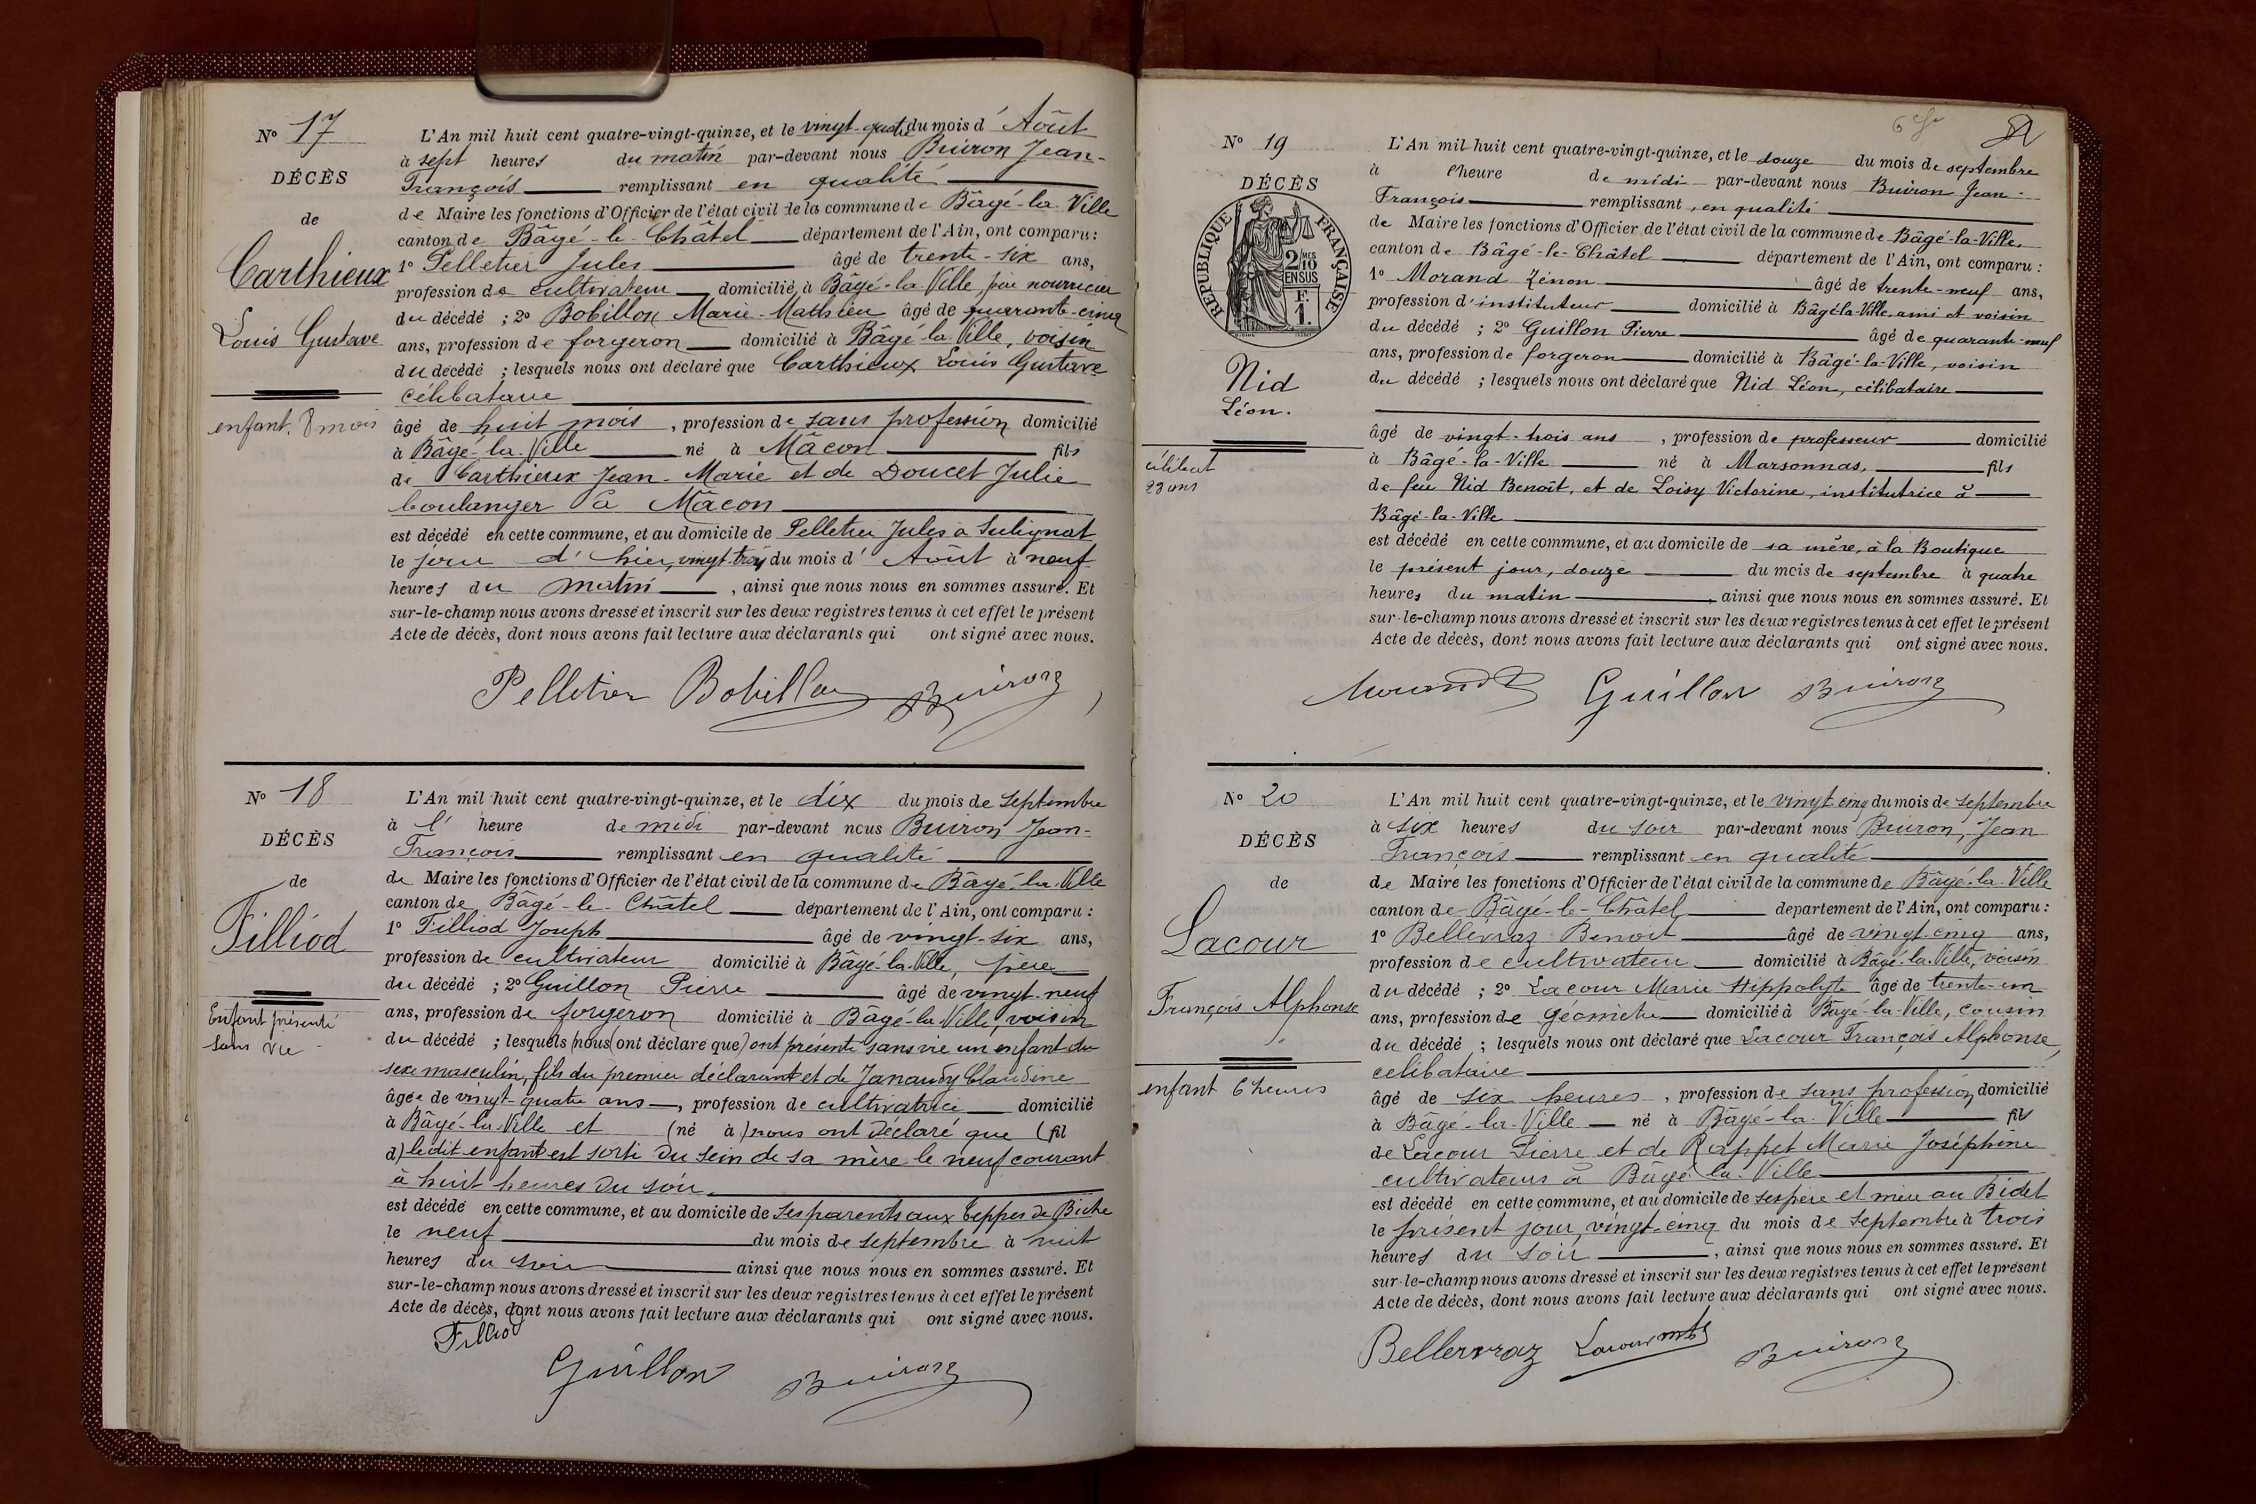 N° 17
DÉCÈS
de
Carthieux
Louis Gustave
enfant. 8 mois
L'An mil huit cent quatre-vingt-quinze, et le vingt-quatre du mois d'Août
à sept heures du matin par-devant nous Buiron Jean-
François remplissant en qualité
de Maire les fonctions d'Officier de l'état civil de la commune de Bâgé-la-Ville
canton de Bâgé-le-Châtel département de l'Ain, ont comparu :
1° Pelletier Jules âgé de trente-six ans,
profession de cultivateur domicilié à Bâgé-la-Ville père nourricier
du décédé ; 2° Bobillon Marie-Mathieu âgé de quarante-cinq
ans, profession de forgeron domicilié à Bâgé-la-Ville, voisin
du décédé ; lesquels nous ont déclaré que Carthieux Louis Gustave
célibataire
âgé de huit mois, profession de sans profession domicilié
à Bâgé-la-Ville né à Mâcon fils
de Carthieux Jean-Marie et de Doucet Julie
boulanger à Mâcon
est décédé en cette commune, et au domicile de Pelletier Jules à Sulignat
le jour d'hier, vingt-trois du mois d'Août à neuf
heures du matin, ainsi que nous nous en sommes assuré. Et
sur-le-champ nous avons dressé et inscrit sur les deux registres tenus à cet effet le présent
Acte de décès, dont nous avons fait lecture aux déclarants qui ont signé avec nous.
Pelletier Bobillon Buiron
N° 18
DÉCÈS
de
Filliod
Enfant présenté
sans vie
L'An mil huit cent quatre-vingt-quinze, et le dix du mois de septembre
à l'heure de midi par-devant nous Buiron Jean-
François remplissant en qualité
de Maire les fonctions d'Officier de l'état civil de la commune de Bâgé-la-Ville
canton de Bâgé-le-Châtel département de l'Ain, ont comparu :
1° Filliod Joseph âgé de vingt-six ans,
profession de cultivateur domicilié à Bâgé-la-Ville, père
du décédé ; 2° Guillon Pierre âgé de vingt-neuf
ans, profession de forgeron domicilié à Bâgé-la-Ville, voisin
du décédé ; lesquels (nous ont déclaré que) ont présenté sans vie un enfant du
sexe masculin, fils du premier déclarant et de Janaudy Claudine
âgée de vingt-quatre ans, profession de cultivatrice domicilié
à Bâgé-la-Ville et (né à) nous ont déclaré que (fil
d) ledit enfant est sorti du sein de sa mère le neuf courant
à huit heures du soir.
est décédé en cette commune, et au domicile de ses parents aux Teppes de Biche
le neuf du mois de septembre à huit
heures du soir ainsi que nous nous en sommes assuré. Et
sur-le-champ nous avons dressé et inscrit sur les deux registres tenus à cet effet le présent
Acte de décès, dont nous avons fait lecture aux déclarants qui ont signé avec nous.
Filliod
Guillon Buiron
N° 19
DÉCÈS
RÉPUBLIQUE FRANÇAISE
2 MES
2/10
EN SUS
F.
1.
Nid
Léon.
célibat
23 ans
L'An mil huit cent quatre-vingt-quinze, et le douze du mois de septembre
à l'heure de midi par-devant nous Buiron Jean-
François remplissant en qualité
de Maire les fonctions d'Officier de l'état civil de la commune de Bâgé-la-Ville.
canton de Bâgé-le-Châtel département de l'Ain, ont comparu :
1° Morand Zénon âgé de trente-neuf ans,
profession d'instituteur domicilié à Bâgé-la-Ville, ami et voisin
du décédé ; 2° Guillon Pierre âgé de quarante-neuf
ans, profession de forgeron domicilié à Bâgé-la-Ville, voisin
du décédé ; lesquels nous ont déclaré que Nid Léon, célibataire
âgé de vingt-trois ans, profession de professeur domicilié
à Bâgé-la-Ville né à Marsonnas, fils
de feu Nid Benoît, et de Loisy Victorine, institutrice à
Bâgé-la-Ville
est décédé en cette commune, et au domicile de sa mère, à la Boutique
le présent jour, douze du mois de septembre à quatre
heures du matin, ainsi que nous nous en sommes assuré. Et
sur-le-champ nous avons dressé et inscrit sur les deux registres tenus à cet effet le présent
Acte de décès, dont nous avons fait lecture aux déclarants qui ont signé avec nous.
Morand Guillon Buiron
N° 20
DÉCÈS
de
Lacour
François Alphonse
enfant 6 heures
L'An mil huit cent quatre-vingt-quinze, et le vingt cinq du mois de septembre
à six heures du soir par-devant nous Buiron, Jean
François remplissant en qualité
de Maire les fonctions d'Officier de l'état civil de la commune de Bâgé-la-Ville
canton de Bâgé-le-Châtel département de l'Ain, ont comparu :
1° Bellevraz Benoit âgé de vingt-cinq ans,
profession de cultivateur domicilié à Bâgé-la-Ville, voisin
du décédé ; 2° Lacour Marie Hippolyte âgé de trente-un
ans, profession de Géomètre domicilié à Bâgé-la-Ville, cousin
du décédé ; lesquels nous ont déclaré que Lacour François Alphonse,
célibataire
âgé de six heures, profession de sans profession domicilié
à Bâgé-la-Ville né à Bâgé-la-Ville fils
de Lacour Pierre et de Rappet Marie Joséphine
cultivateurs à Bâgé-la-Ville
est décédé en cette commune, et au domicile de ses père et mère au Bidet
le présent jour, vingt-cinq du mois de septembre à trois
heures du soir, ainsi que nous nous en sommes assuré. Et
sur-le-champ nous avons dressé et inscrit sur les deux registres tenus à cet effet le présent
Acte de décès, dont nous avons fait lecture aux déclarants qui ont signé avec nous.
Bellevraz Lacour Buiron